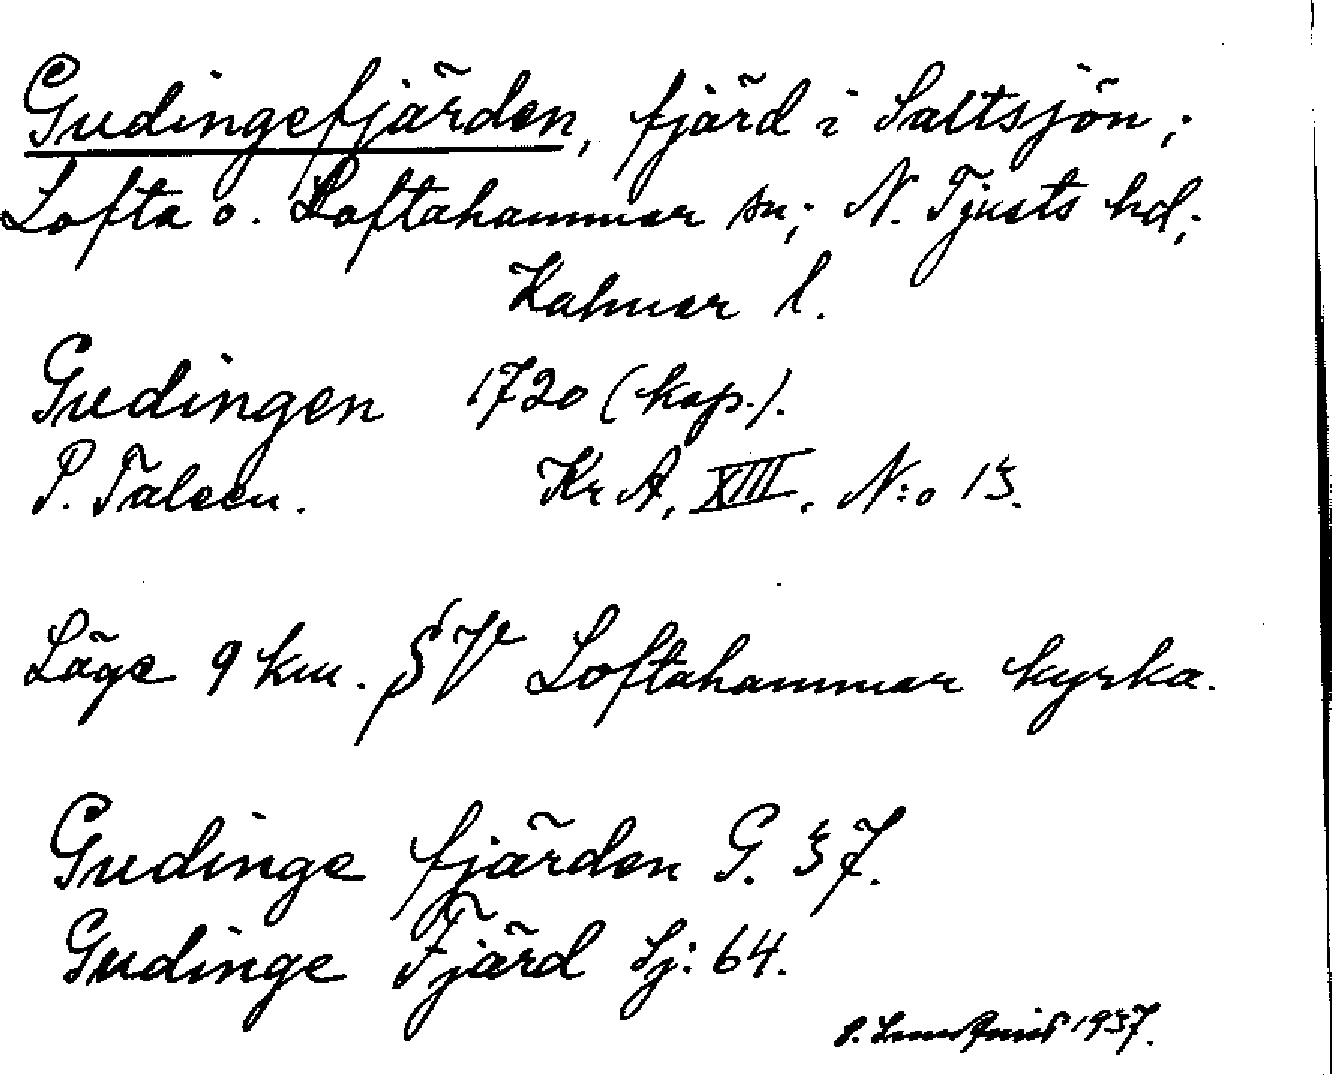 Gudingefjärden, fjärd i Saltsjön;
Lofta o. Loftahammar sn; N. Tjusts hd;
Kalmar l.
Gudingen 1720 (kop.).
P. Taleen. Kr A, XIII. N:o 13.
Läge 9 km. SV Loftahammar kyrka.
Gudinge fjärden G. 37.
Gudinge Fjärd Sj: 64.
1937.